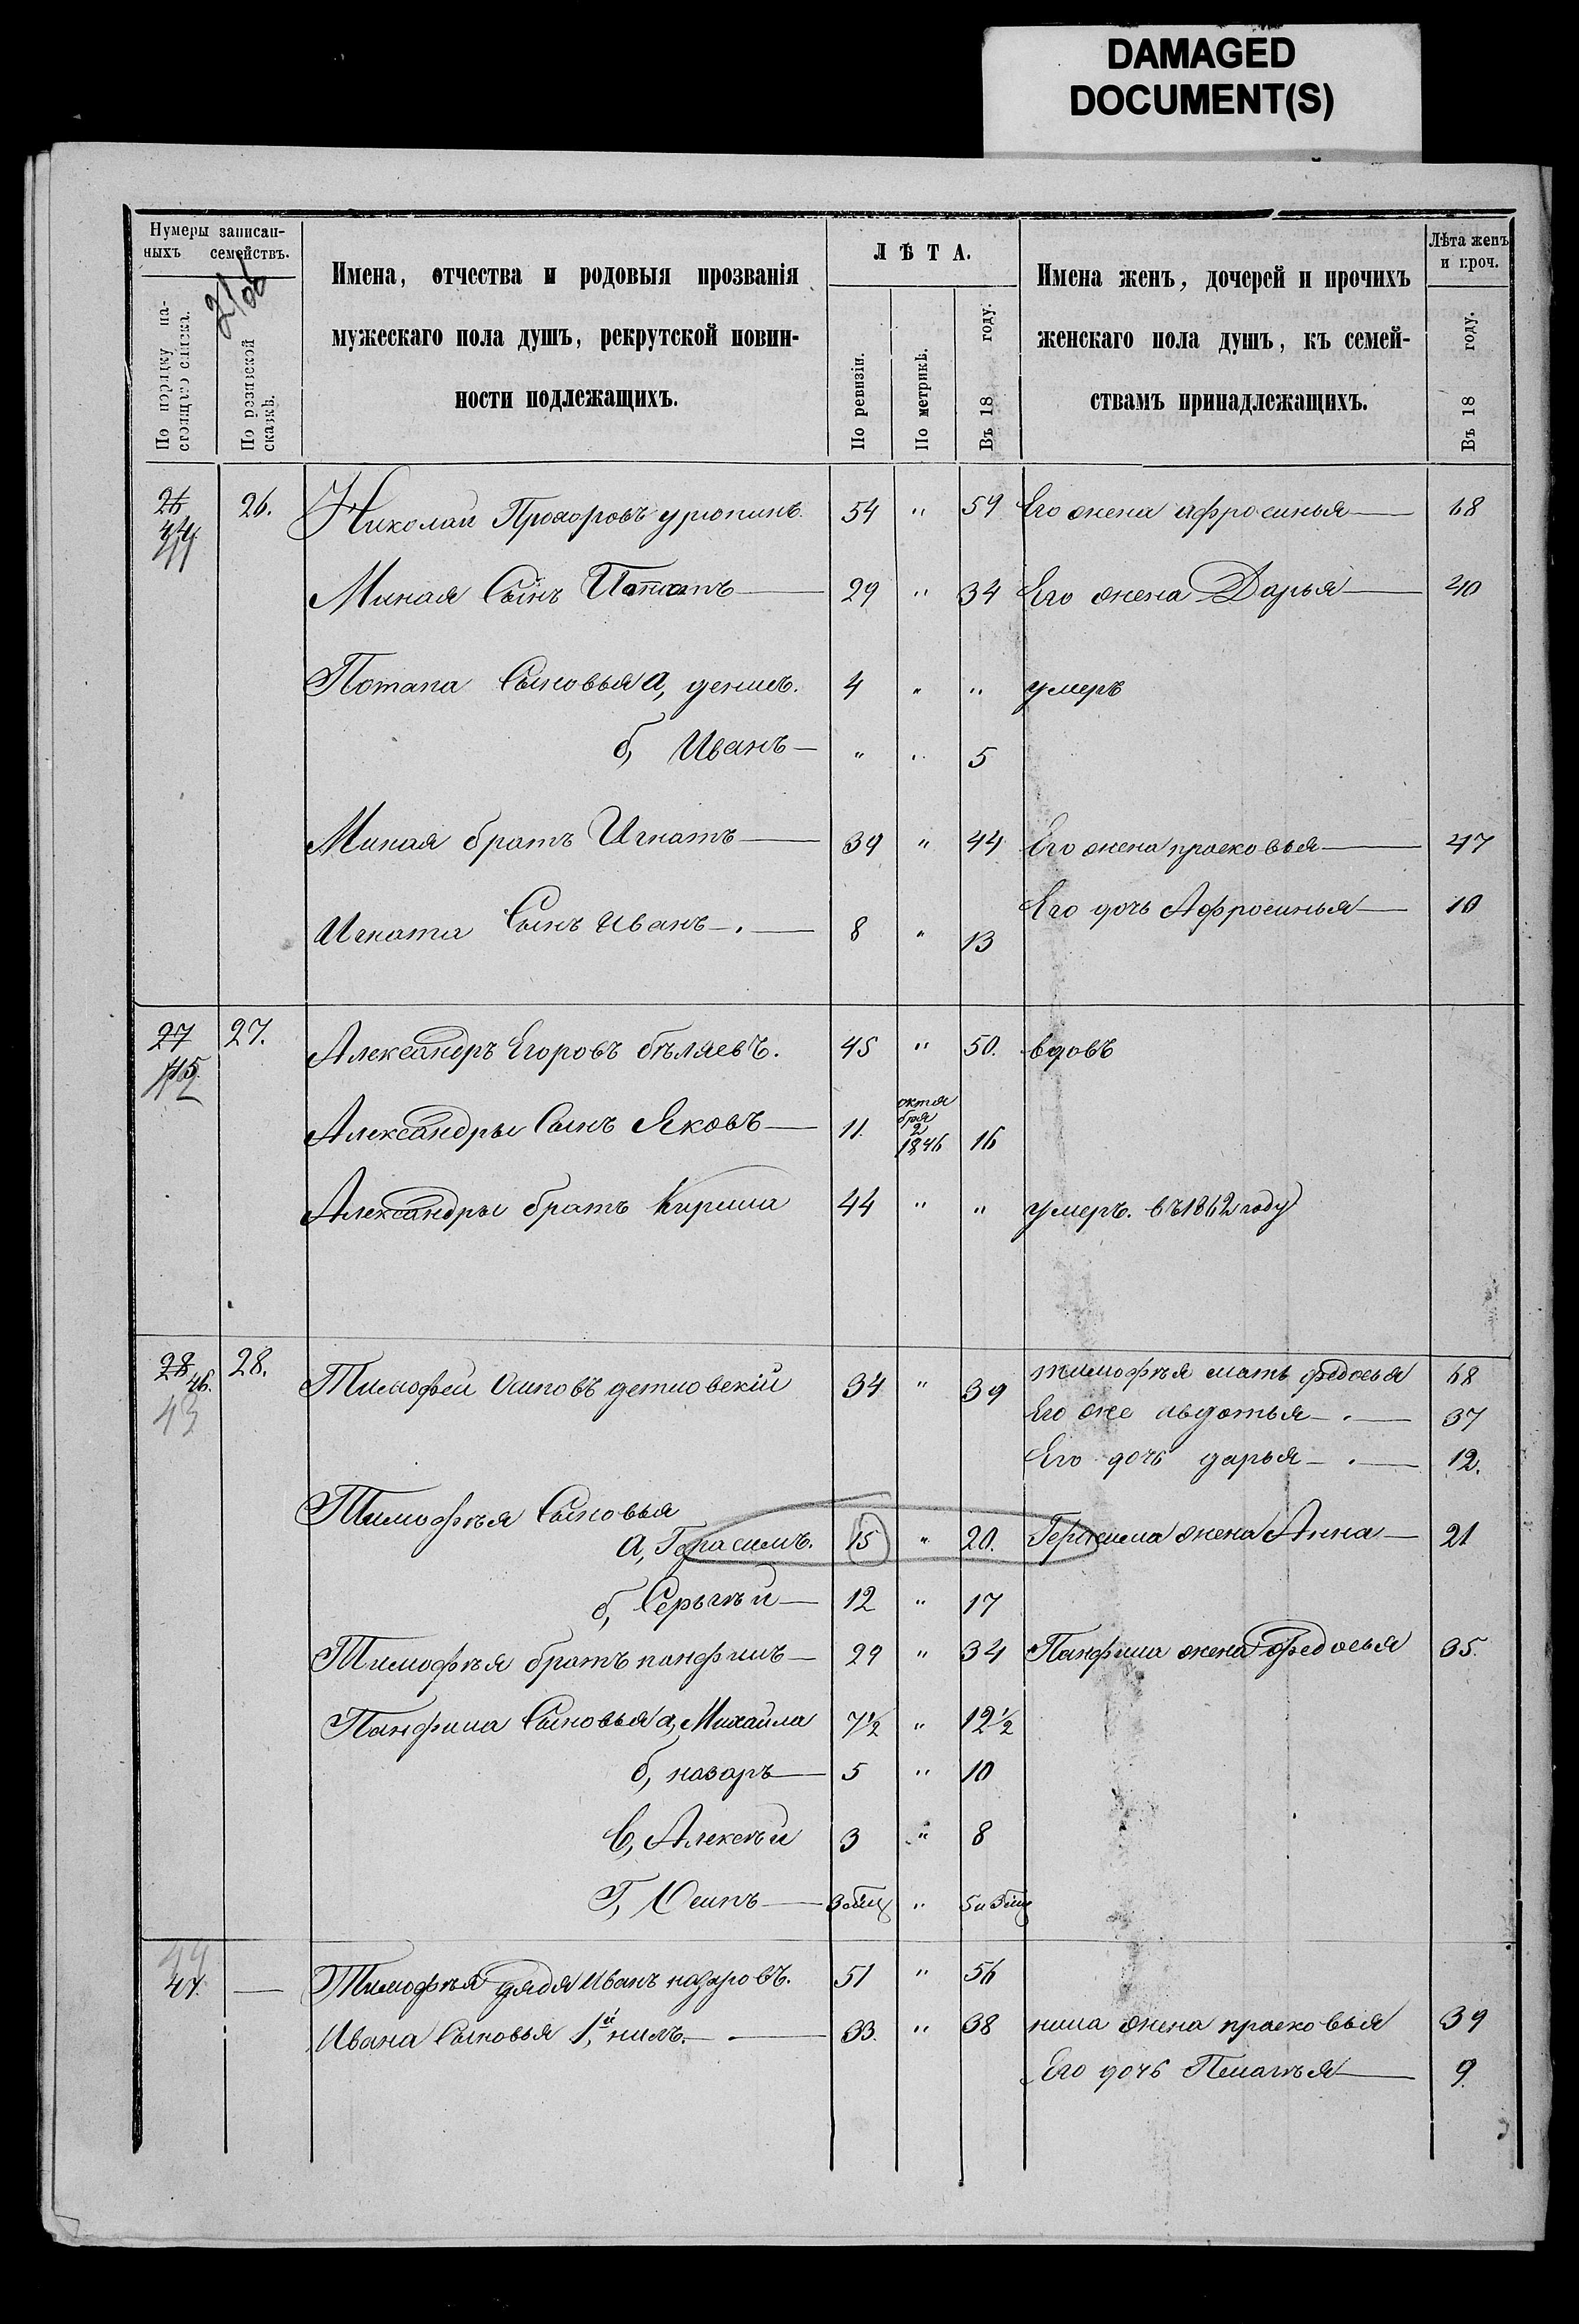 DAMAGED
DOCUMENT(S)
Нумеры записан-
ныхъ семействъ.
По порядку на-
стоящаго списка.
По ревизской
сказкѣ.
Имена, отчества и родовыя прозванія
мужескаго пола душъ, рекрутской повин-
ности подлежащихъ.
ЛѢТА.
По ревизіи.
По метрикѣ.
Въ 18 году.
Имена женъ, дочерей и прочихъ
женскаго пола душъ, къ семей-
ствамъ принадлежащихъ.
Лѣта женъ
и проч.
Въ 18 году.
26 26. Николай Прохоровъ урюпинъ. 54 " 59 Его жена афросинья 68
44
Миная Сынъ Потапъ 29 " 34 Его жена Дарья 40
Потапа Сыновья а, денисъ. 4 " " умеръ
б, Иванъ 
" " 5
Миная братъ Игнатъ 39 " 44 Его жена прасковья 47
Его дочь Афросинья 10
Игната Сынъ иванъ 8 " 13
27 27. Александръ Егоровъ бѣляевъ. 45 " 50. вдовъ
45
Александры Сынъ Яковъ 11. октя
бря
2
1846 16
Александры братъ Кирила 44 " " умеръ. въ 1862 году
28 28. Тимофей Осиповъ детновскій 34 " 39 тимофѣя мать федосья 68
46.
43
Его же авдотья 37
Его дочь дарья 12.
Тимофѣя Сыновья
а, Герасимъ. 15 " 20. Герасима жена Анна 21
б, Сергѣй 12 " 17
Тимофѣя братъ панфилъ 29 " 34 Панфила жена федосья 35.
Панфила Сыновья а, Михайла 7½ " 12½
б, назаръ 5 " 10
в, Алексѣй 3 " 8
Г, Осипъ
44
47. Тимофѣя дядя Иванъ назаровъ. 51 " 56
Ивана Сыновья 1й, нилъ. 33. " 38 нила жена прасковья 39
Его дочь Пелагѣя 9.